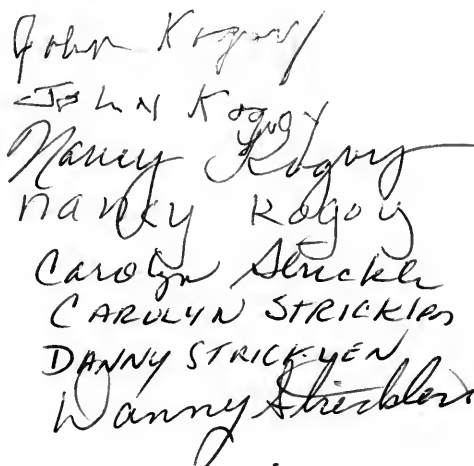 John Kogoy
JOHN Kogoy
Nancy Kogoy
nancy Kogoy
Carolyn Strickle
CAROLYN STRICKLEN
DANNY STRICKLEN
Danny Stricklen